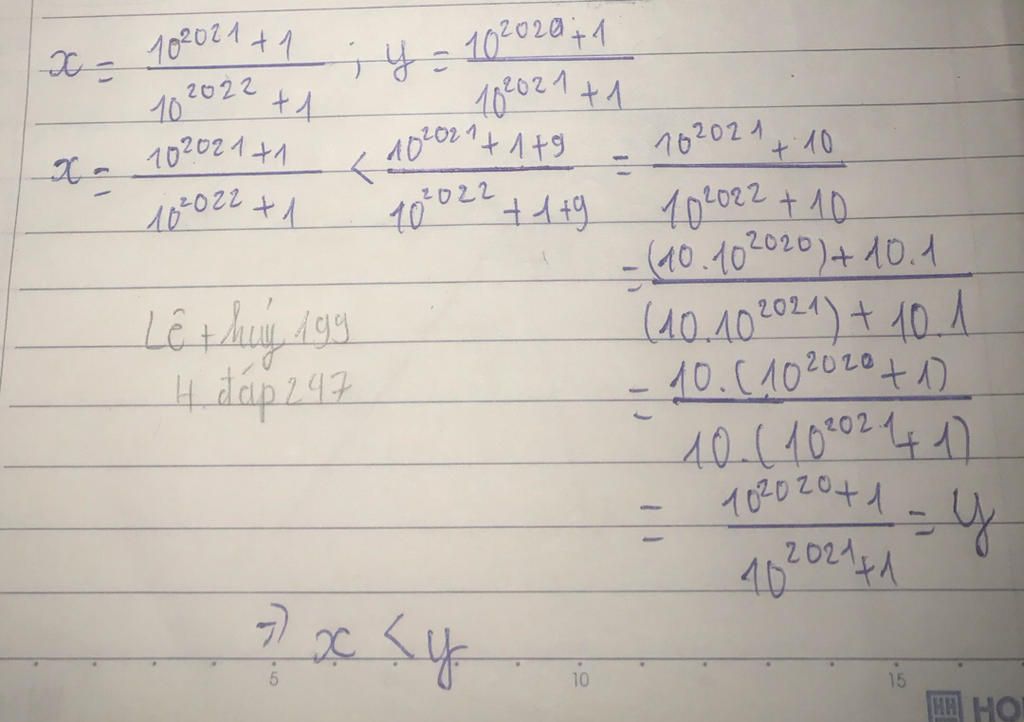 x = \frac{10^{2021}+1}{10^{2022}+1} ; y = \frac{10^{2020}+1}{10^{2021}+1}
x = \frac{10^{2021}+1}{10^{2022}+1} < \frac{10^{2021}+1+9}{10^{2022}+1+9} = \frac{10^{2021}+10}{10^{2022}+10}
= \frac{(10.10^{2020})+10.1}{(10.10^{2021})+10.1}
Lê thúy 199
H.đáp 247
= \frac{10.(10^{2020}+1)}{10.(10^{2021}+1)}
= \frac{10^{2020}+1}{10^{2021}+1} = y
=> x < y
5 10 15
HH HO